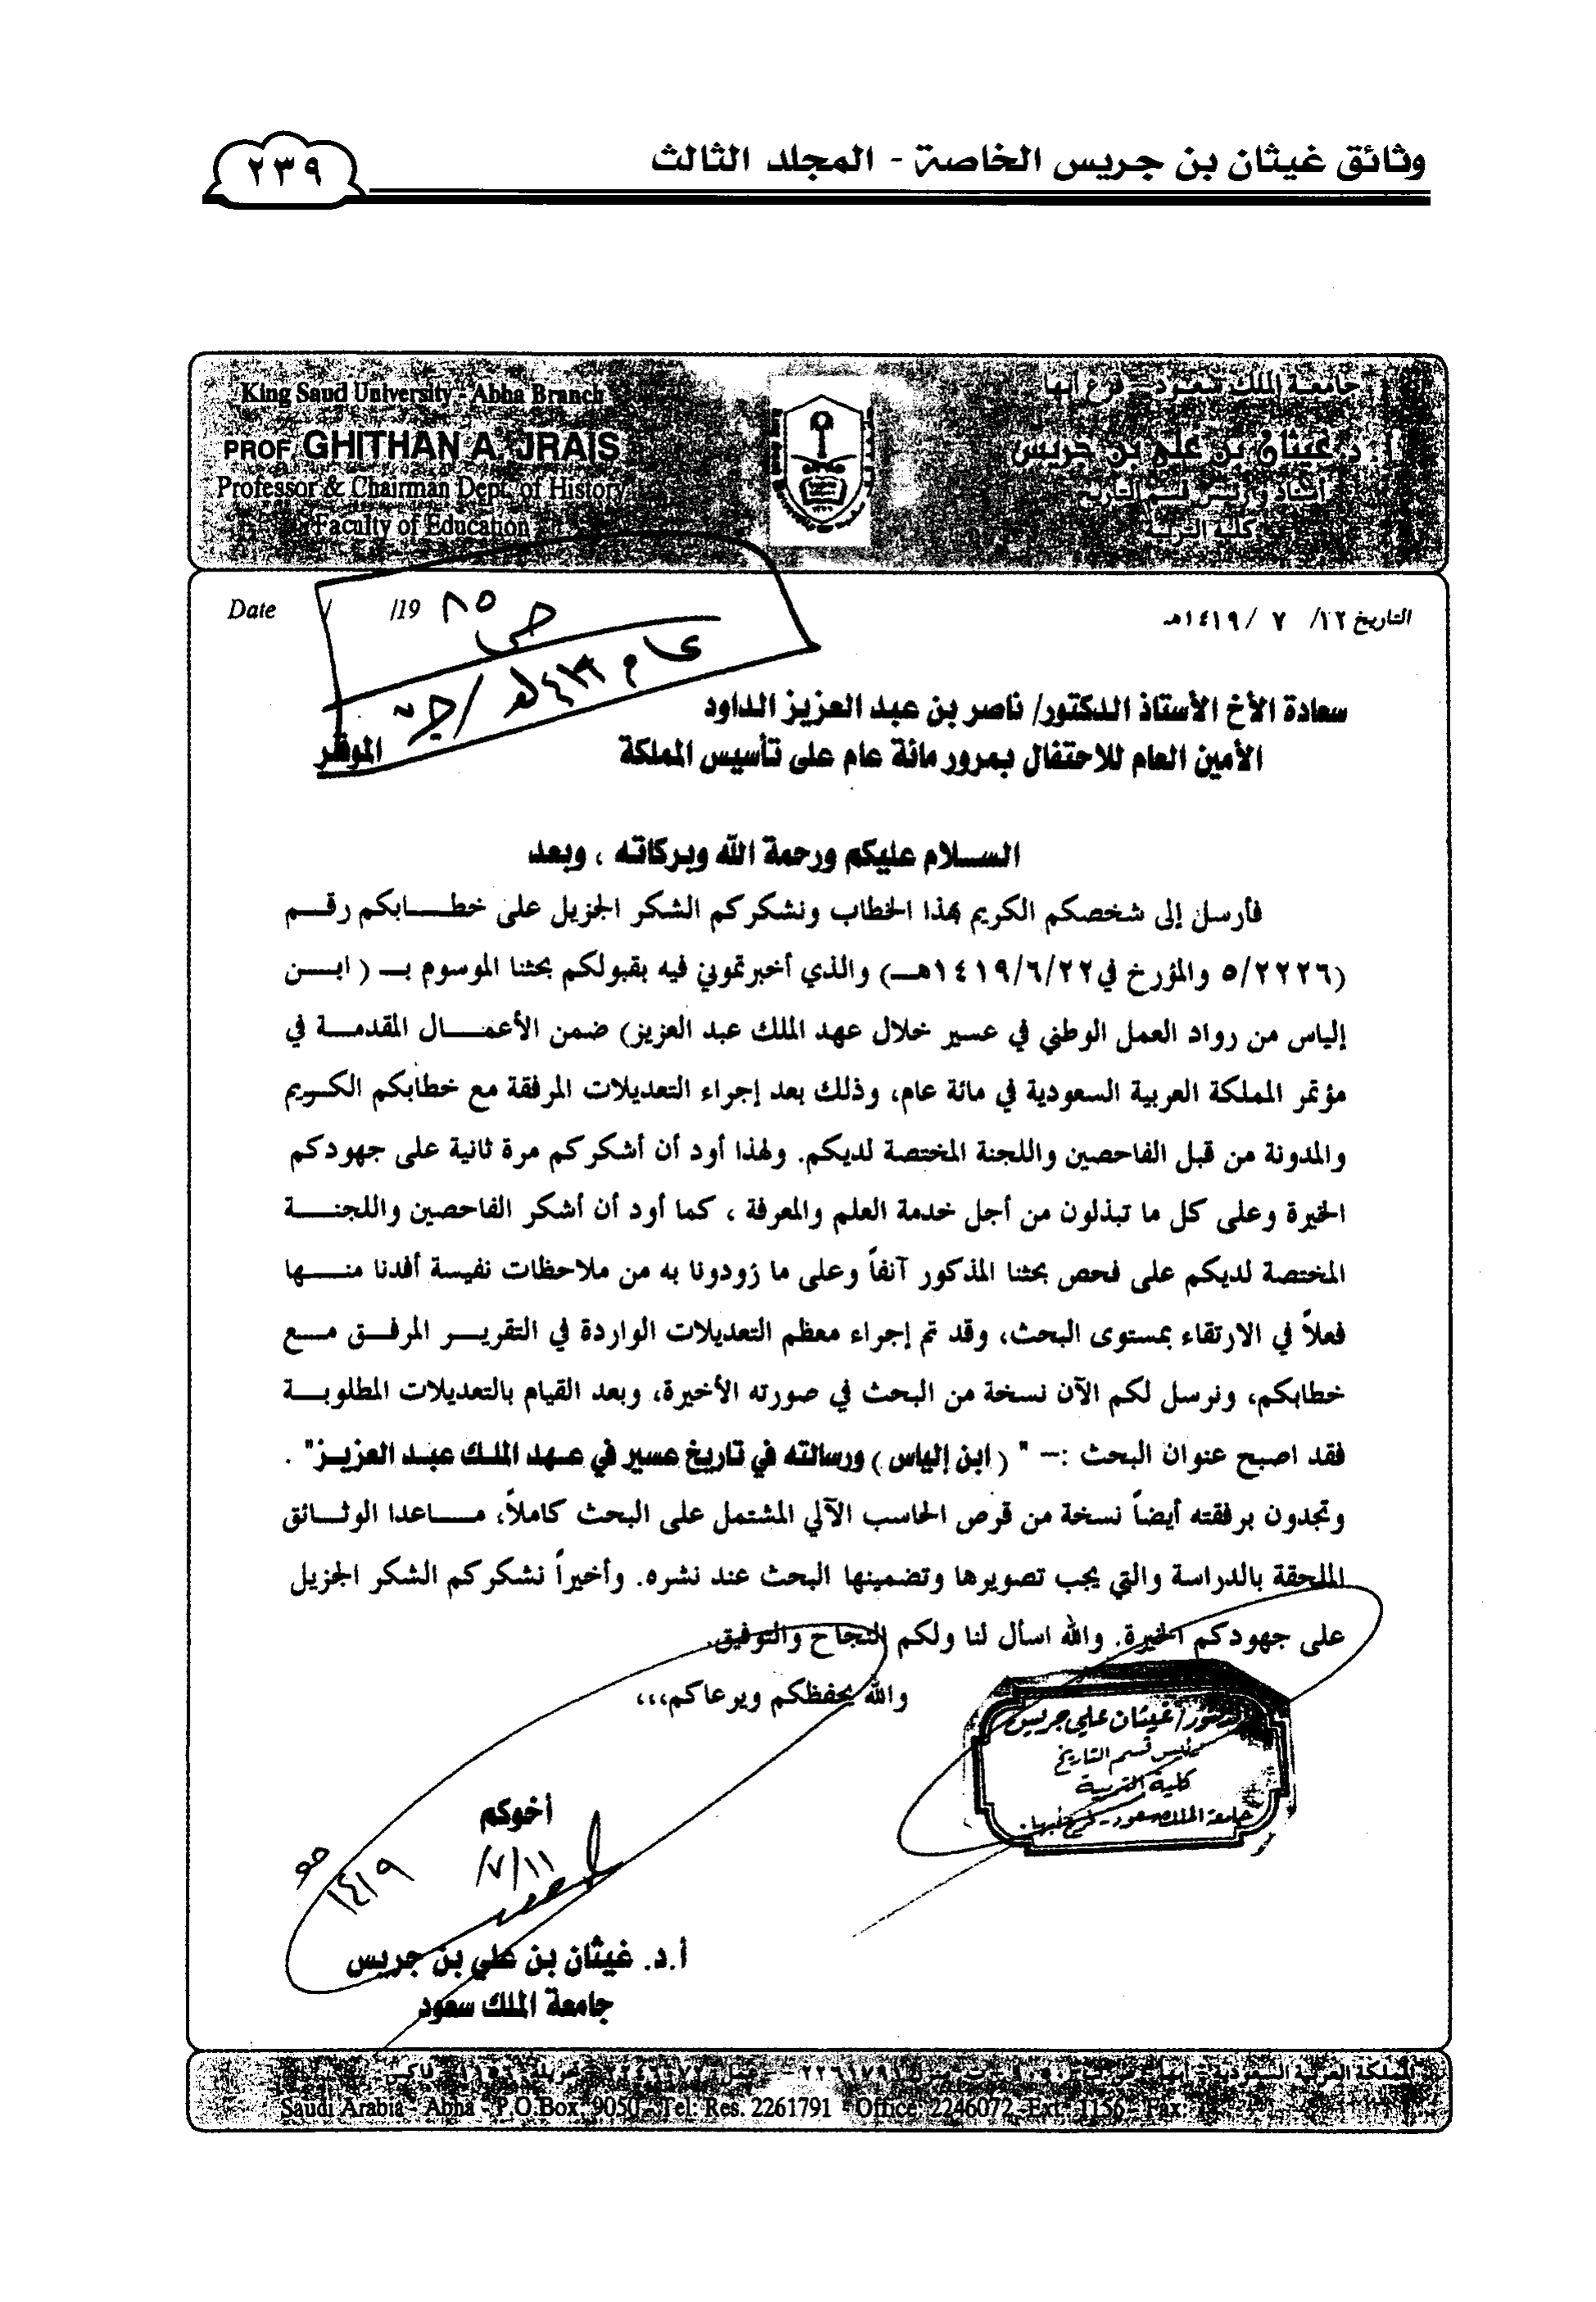 وثائق غيثان بن جريس الخاصة - المجلد الثالث
٢٣٩
King Saud University - Abha Branch
PROF. GHITHAN A. JRAIS
Professor & Chairman Dept. of History
Faculty of Education
جامعة الملك سعود - فرع أبها
أ.د غيثان بن علي بن جريس
أستاذ ورئيس قسم التاريخ
كلية التربية
التاريخ ١٢/ ٧ /١٤١٩هـ
Date / /19
سعادة الأخ الأستاذ الدكتور/ ناصر بن عبد العزيز الداود
الأمين العام للاحتفال بمرور مائة عام على تأسيس المملكة الموقر
السلام عليكم ورحمة الله وبركاته ، وبعد
فأرسل إلى شخصكم الكريم بهذا الخطاب ونشكركم الشكر الجزيل على خطابكم رقم
(٥/٢٢٢٦ والمؤرخ في ١٤١٩/٦/٢٢هـ) والذي أخبرتموني فيه بقبولكم بحثنا الموسوم بـ ( ابن
إلياس من رواد العمل الوطني في عسير خلال عهد الملك عبد العزيز) ضمن الأعمال المقدمة في
مؤتمر المملكة العربية السعودية في مائة عام، وذلك بعد إجراء التعديلات المرفقة مع خطابكم الكريم
والمدونة من قبل الفاحصين واللجنة المختصة لديكم. ولهذا أود أن أشكركم مرة ثانية على جهودكم
الخيرة وعلى كل ما تبذلون من أجل خدمة العلم والمعرفة ، كما أود أن أشكر الفاحصين واللجنة
المختصة لديكم على فحص بحثنا المذكور آنفاً وعلى ما زودونا به من ملاحظات نفيسة أفدنا منها
فعلاً في الارتقاء بمستوى البحث، وقد تم إجراء معظم التعديلات الواردة في التقرير المرفق مع
خطابكم، ونرسل لكم الآن نسخة من البحث في صورته الأخيرة، وبعد القيام بالتعديلات المطلوبة
فقد اصبح عنوان البحث :– " ( ابن إلياس ) ورسالته في تاريخ عسير في عهد الملك عبد العزيز" .
وتجدون برفقته أيضاً نسخة من قرص الحاسب الآلي المشتمل على البحث كاملاً، ماعدا الوثائق
الملحقة بالدراسة والتي يجب تصويرها وتضمينها البحث عند نشره. وأخيراً نشكركم الشكر الجزيل
على جهودكم الخيرة. والله اسأل لنا ولكم النجاح والتوفيق.
والله يحفظكم ويرعاكم،،،
الدكتور/ غيثان علي جريس
رئيس قسم التاريخ
كلية التربية
جامعة الملك سعود - فرع أبها
أخوكم
٧/١١/
١٤١٩
أ.د. غيثان بن علي بن جريس
جامعة الملك سعود
Saudi Arabia - Abha - P.O.Box: 9050 - Tel: Res. 2261791 - Office: 2246072 - Ext. 1156 - Fax: